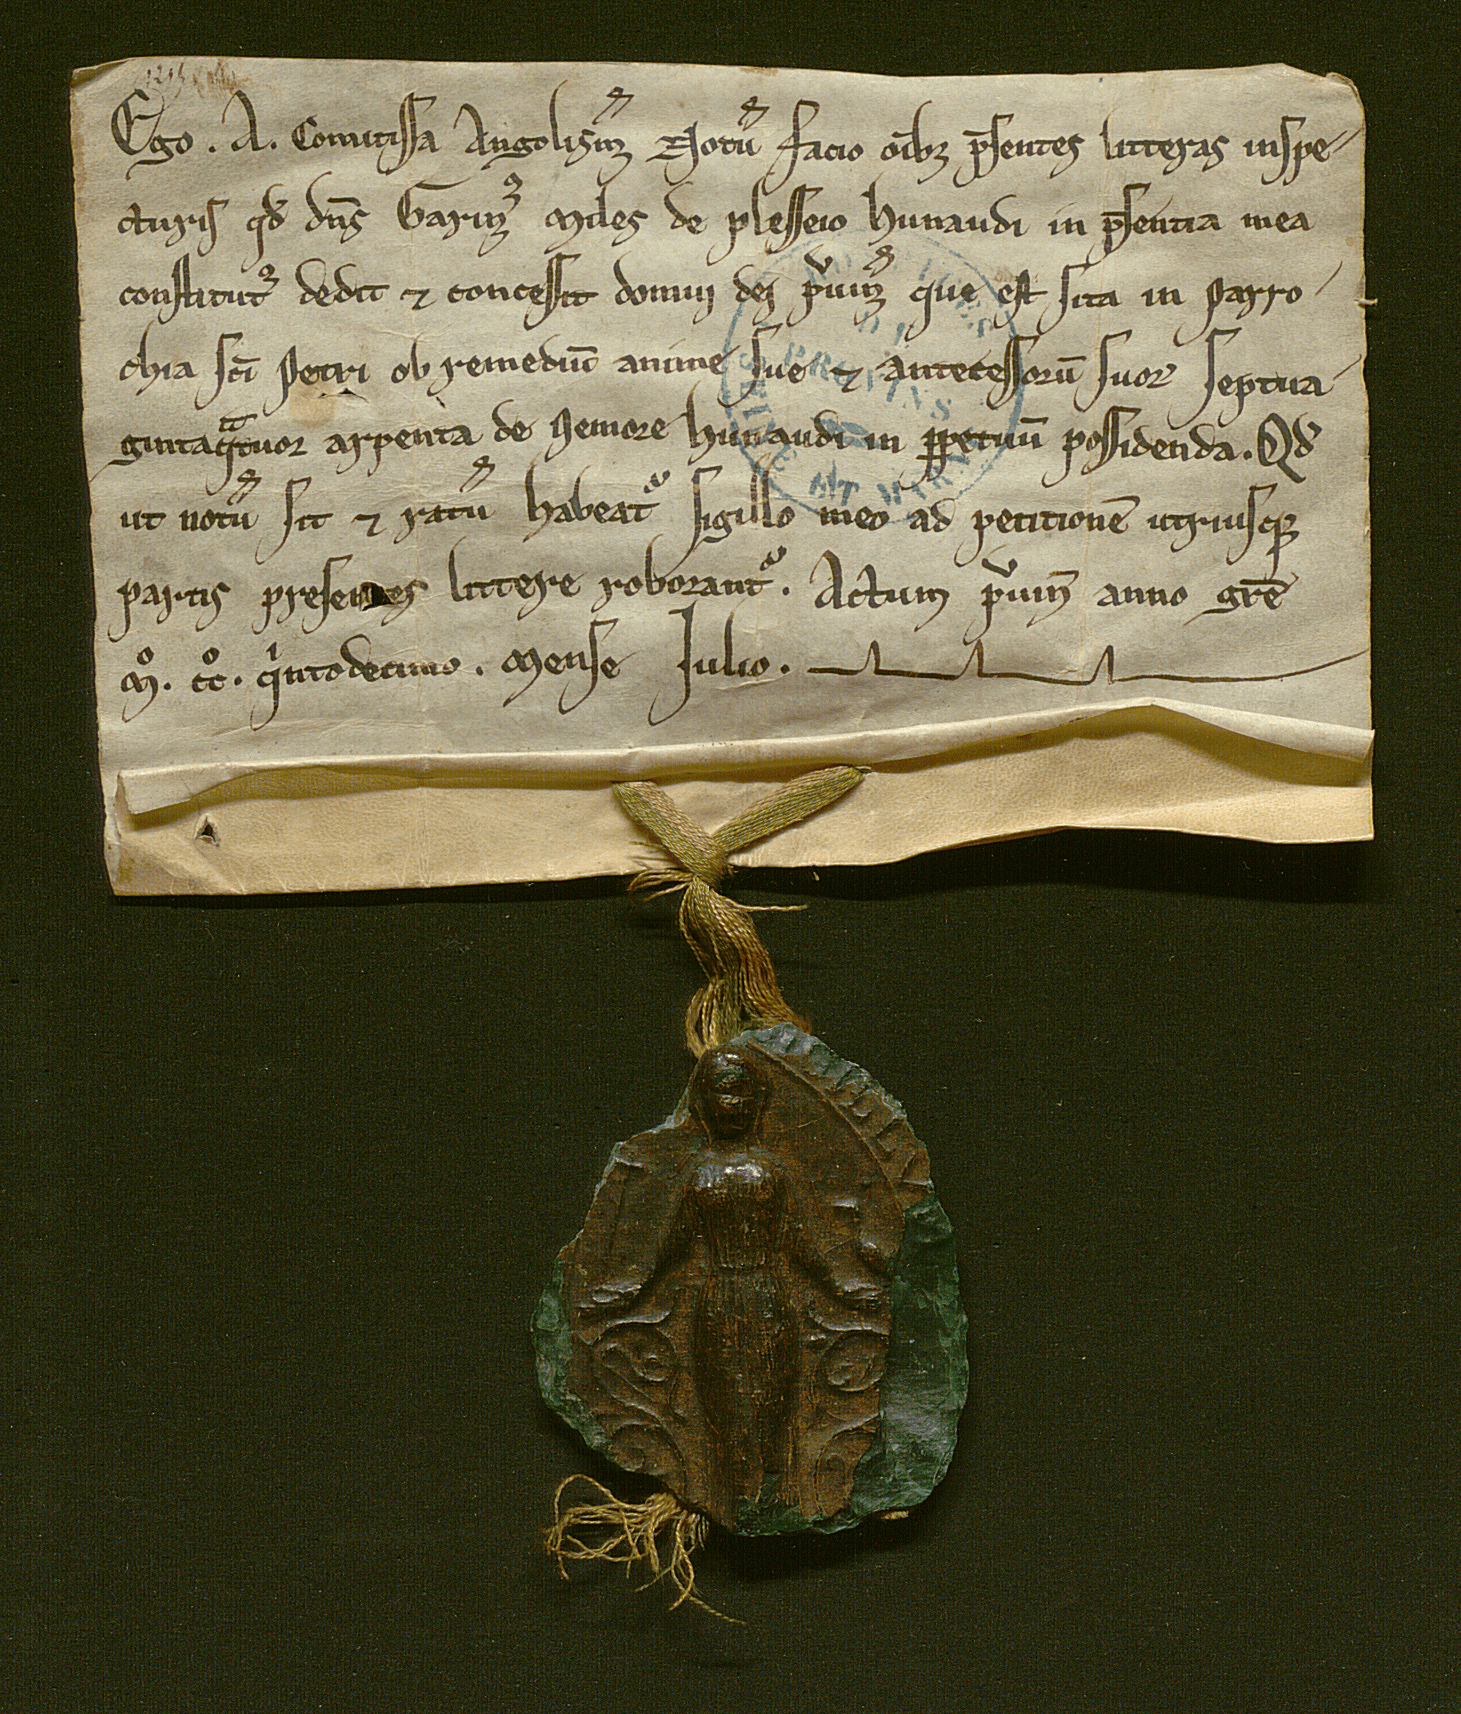 1215
Ego . A . Comitissa Angolism̄ Notū facio oīb; p̄sentes litteras inspe-
cturis qd' dn̄s Garin9 miles de plesseio hunaudi in p̄sentia mea
constitut9 dedit ⁊ concessit domuj dej p̄uin̄ que est sita in parro-
chia sc̄i petri ob remediū anime sue ⁊ antecessorū suoꝝ septua-
gintaqᵃtuor arpenta de nemore hunaudi in ꝑpetuū possidenda. Qd'
ut notū sit ⁊ ratū habeat᷑ sigillo meo ad petitionē utriusqꝫ
partis presentes littere roborant᷑. Actum p̄uin̄ anno gr̄e
mͦ. ccͦ. qⁱntodecimo . mense Julio .
PROVINS